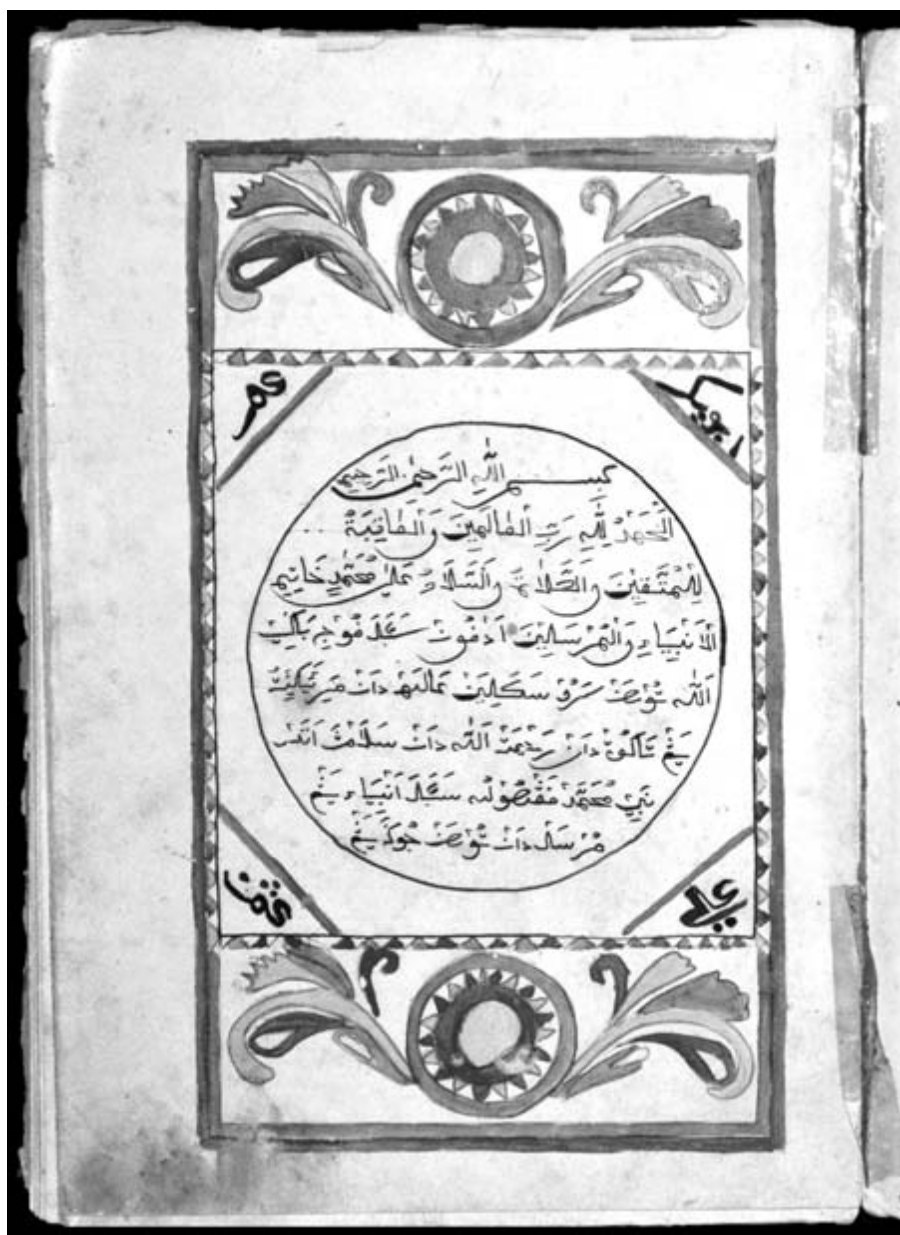 ابوبكر
عمر
بسم اللّٰه الرَّحمٰن الرَّحيم
الْحَمْدُ لِلّٰهِ رَبِّ الْعَالَمِيْنَ وَالْعَاقِبَةُ
لِلْمُتَّقِيْنَ وَالصَّلَاةُ وَالسَّلَامُ عَلَى مُحَمَّدٍ خَاتِيمِ
الْاَنْبِيَاءِ وَالْمُرْسَلِيْنَ اَدَفُوْنْ سَݢَلَ فُوْجِ بَاݢِي
اللّٰه تُوْهَنْ سَرُوْ سَكَلِيَنْ عَالَمْ دَانْ
يَڠ تَاكُوْة دَانْ رَحْمَة اللّٰه دَانْ سَلَامَتْ اَتَسْ
نَبِيْ مُحَمَّدْ سَݢَلَ اَنْبِيَاء يَڠ
مُرْسَل دَانْ تُوْهَنْ
علي
عثمن